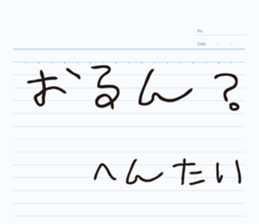 No.
Date . .
おるん？
へんたい